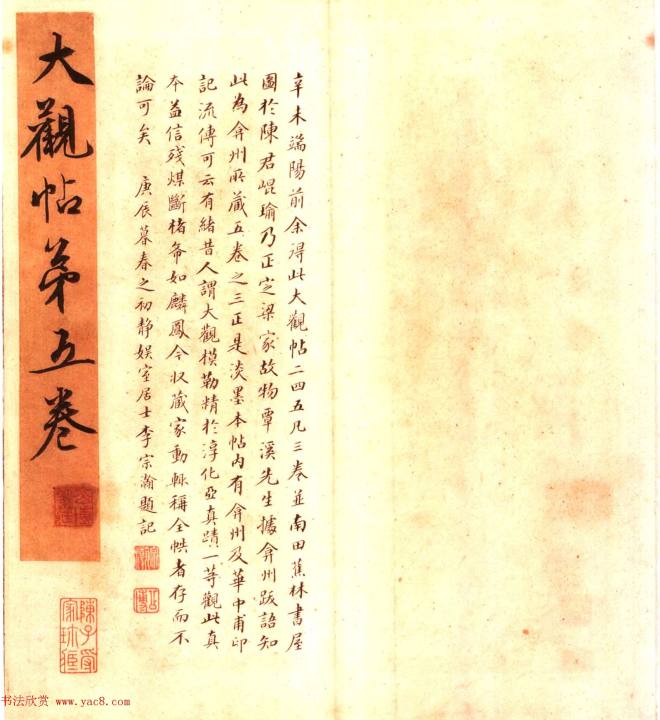 辛未端陽前余得此大觀帖二四五凡三卷並南田蕉林書屋
圖於陳君崐瑜乃正定梁家故物覃溪先生據弇州跋語知
此為弇州所藏五卷之三正是淡墨本帖內有弇州及華中甫印
記流傳可云有緒昔人謂大觀模勒精於淳化亞真蹟一等觀此真
本益信殘煤斷楮希如麟鳳今收藏家動輒稱全帙者存而不
論可矣 庚辰暮春之初靜娛室居士李宗瀚題記
大觀帖第五卷
書法欣赏 www.yac8.com